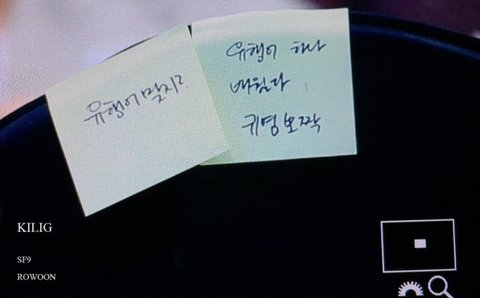 유행어
유행어 하나
배웠다
귀염뽀짝
KILIG
SF9
ROWOON